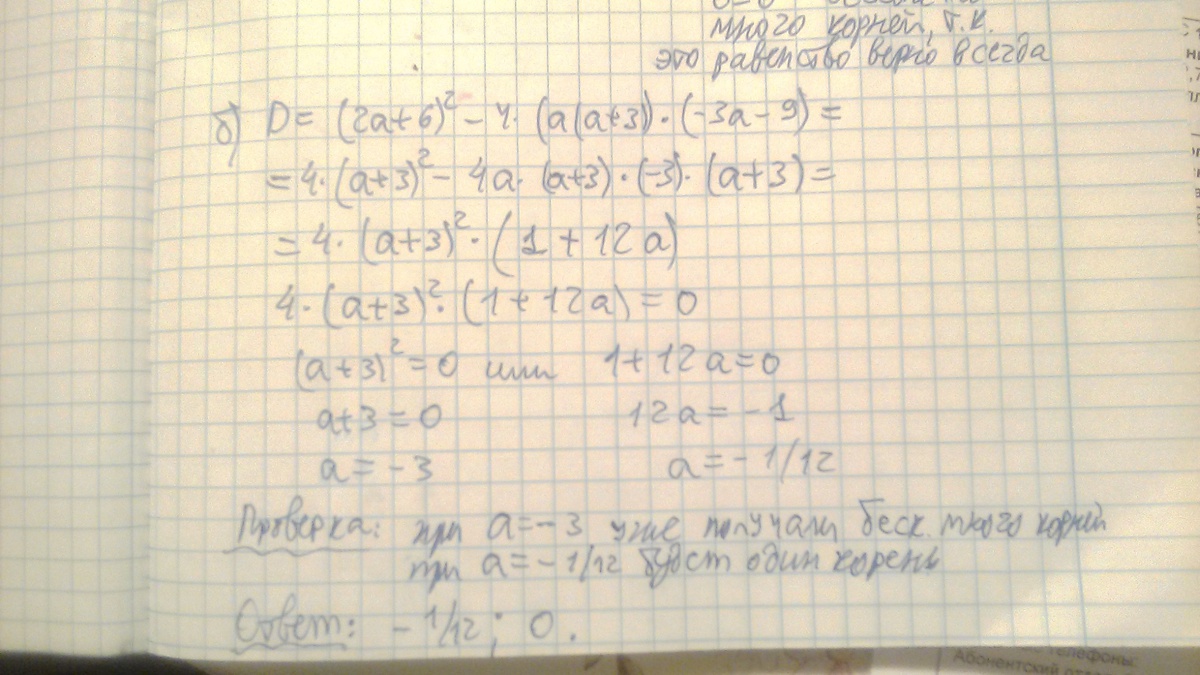 много корней, т.к.
это равенство верно всегда
б) D = (2a+6)² - 4·(a(a+3))·(-3a-9) =
= 4·(a+3)² - 4a·(a+3)·(-3)·(a+3) =
= 4·(a+3)²·(1+12a)
4·(a+3)²·(1+12a) = 0
(a+3)² = 0 или 1+12a = 0
a+3 = 0 12a = -1
a = -3 a = -1/12
Проверка: при a = -3 уже получали беск. много корней
при a = -1/12 будет один корень
Ответ: -1/12; 0.
телефоны:
Абонентский отдел